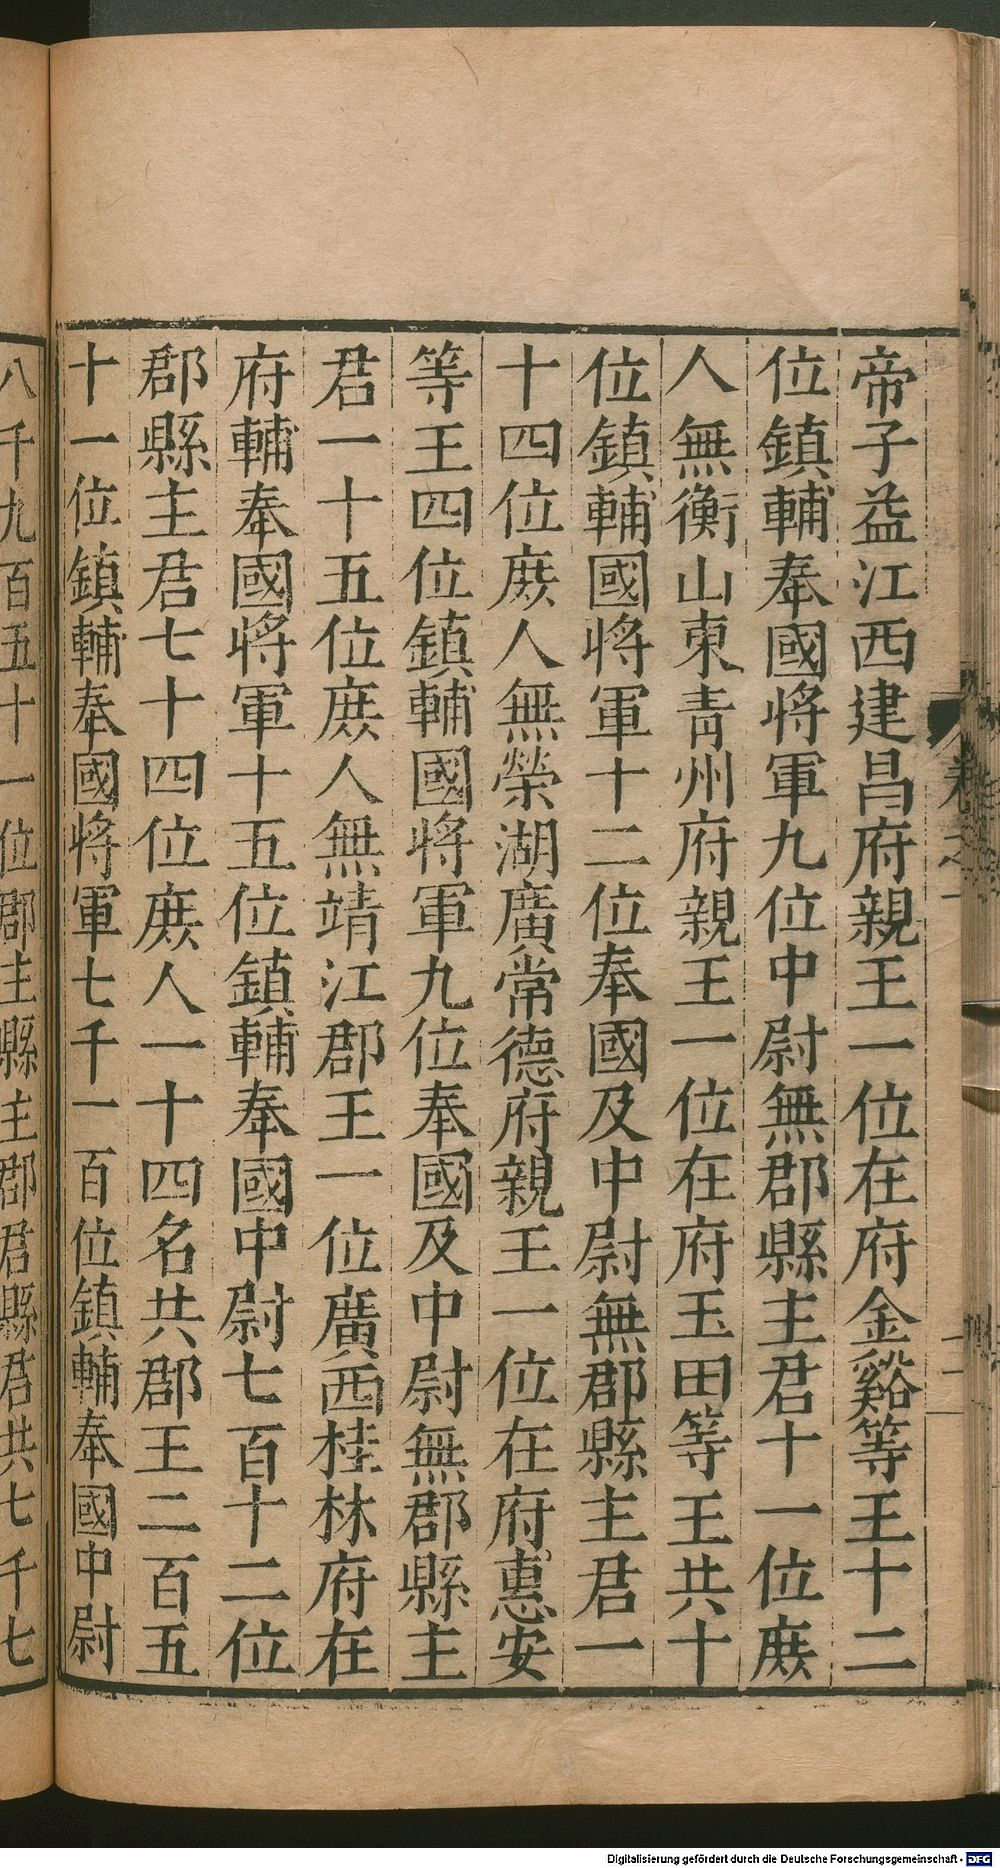 帝子益江西建昌府親王一位在府金谿等王十二
位鎮輔奉國將軍九位中尉無郡縣主君十一位庻
人無衡山東青州府親王一位在府玉田等王共十
位鎮輔國將軍十二位奉國及中尉無郡縣主君一
十四位庻人無榮湖廣常德府親王一位在府惠安
等王四位鎮輔國將軍九位奉國及中尉無郡縣主
君一十五位庻人無靖江郡王一位廣西桂林府在
府輔奉國將軍十五位鎮輔奉國中尉七百十二位
郡縣主君七十四位庻人一十四名共郡王二百五
十一位鎮輔奉國將軍七千一百位鎮輔奉國中尉
八千九百五十一位郡主縣主郡君縣君共七千七
卷之一
Digitalisierung gefördert durch die Deutsche Forschungsgemeinschaft - DFG